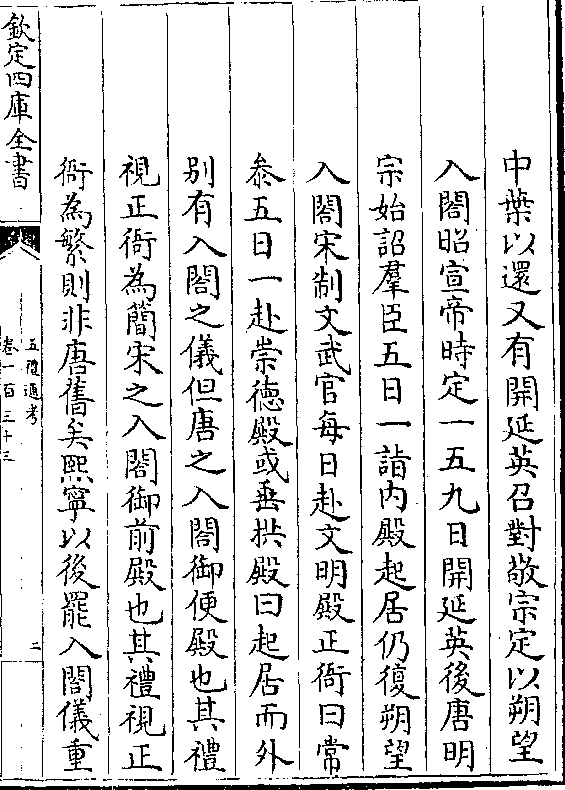 中葉以還又有開延英召對敬宗定以朔望
入閤昭宣帝時定一五九日開延英後唐明
宗始詔羣臣五日一詣内殿起居仍復朔望
入閤宋制文武官每日赴文明殿正衙曰常
叅五日一赴崇德殿或垂拱殿曰起居而外
别有入閤之儀但唐之入閤御便殿也其禮
視正衙為簡宋之入閤御前殿也其禮視正
衙為繁則非唐舊矣熙寧以後罷入閤儀重
欽定四庫全書
五禮通考
卷一百三十三
二